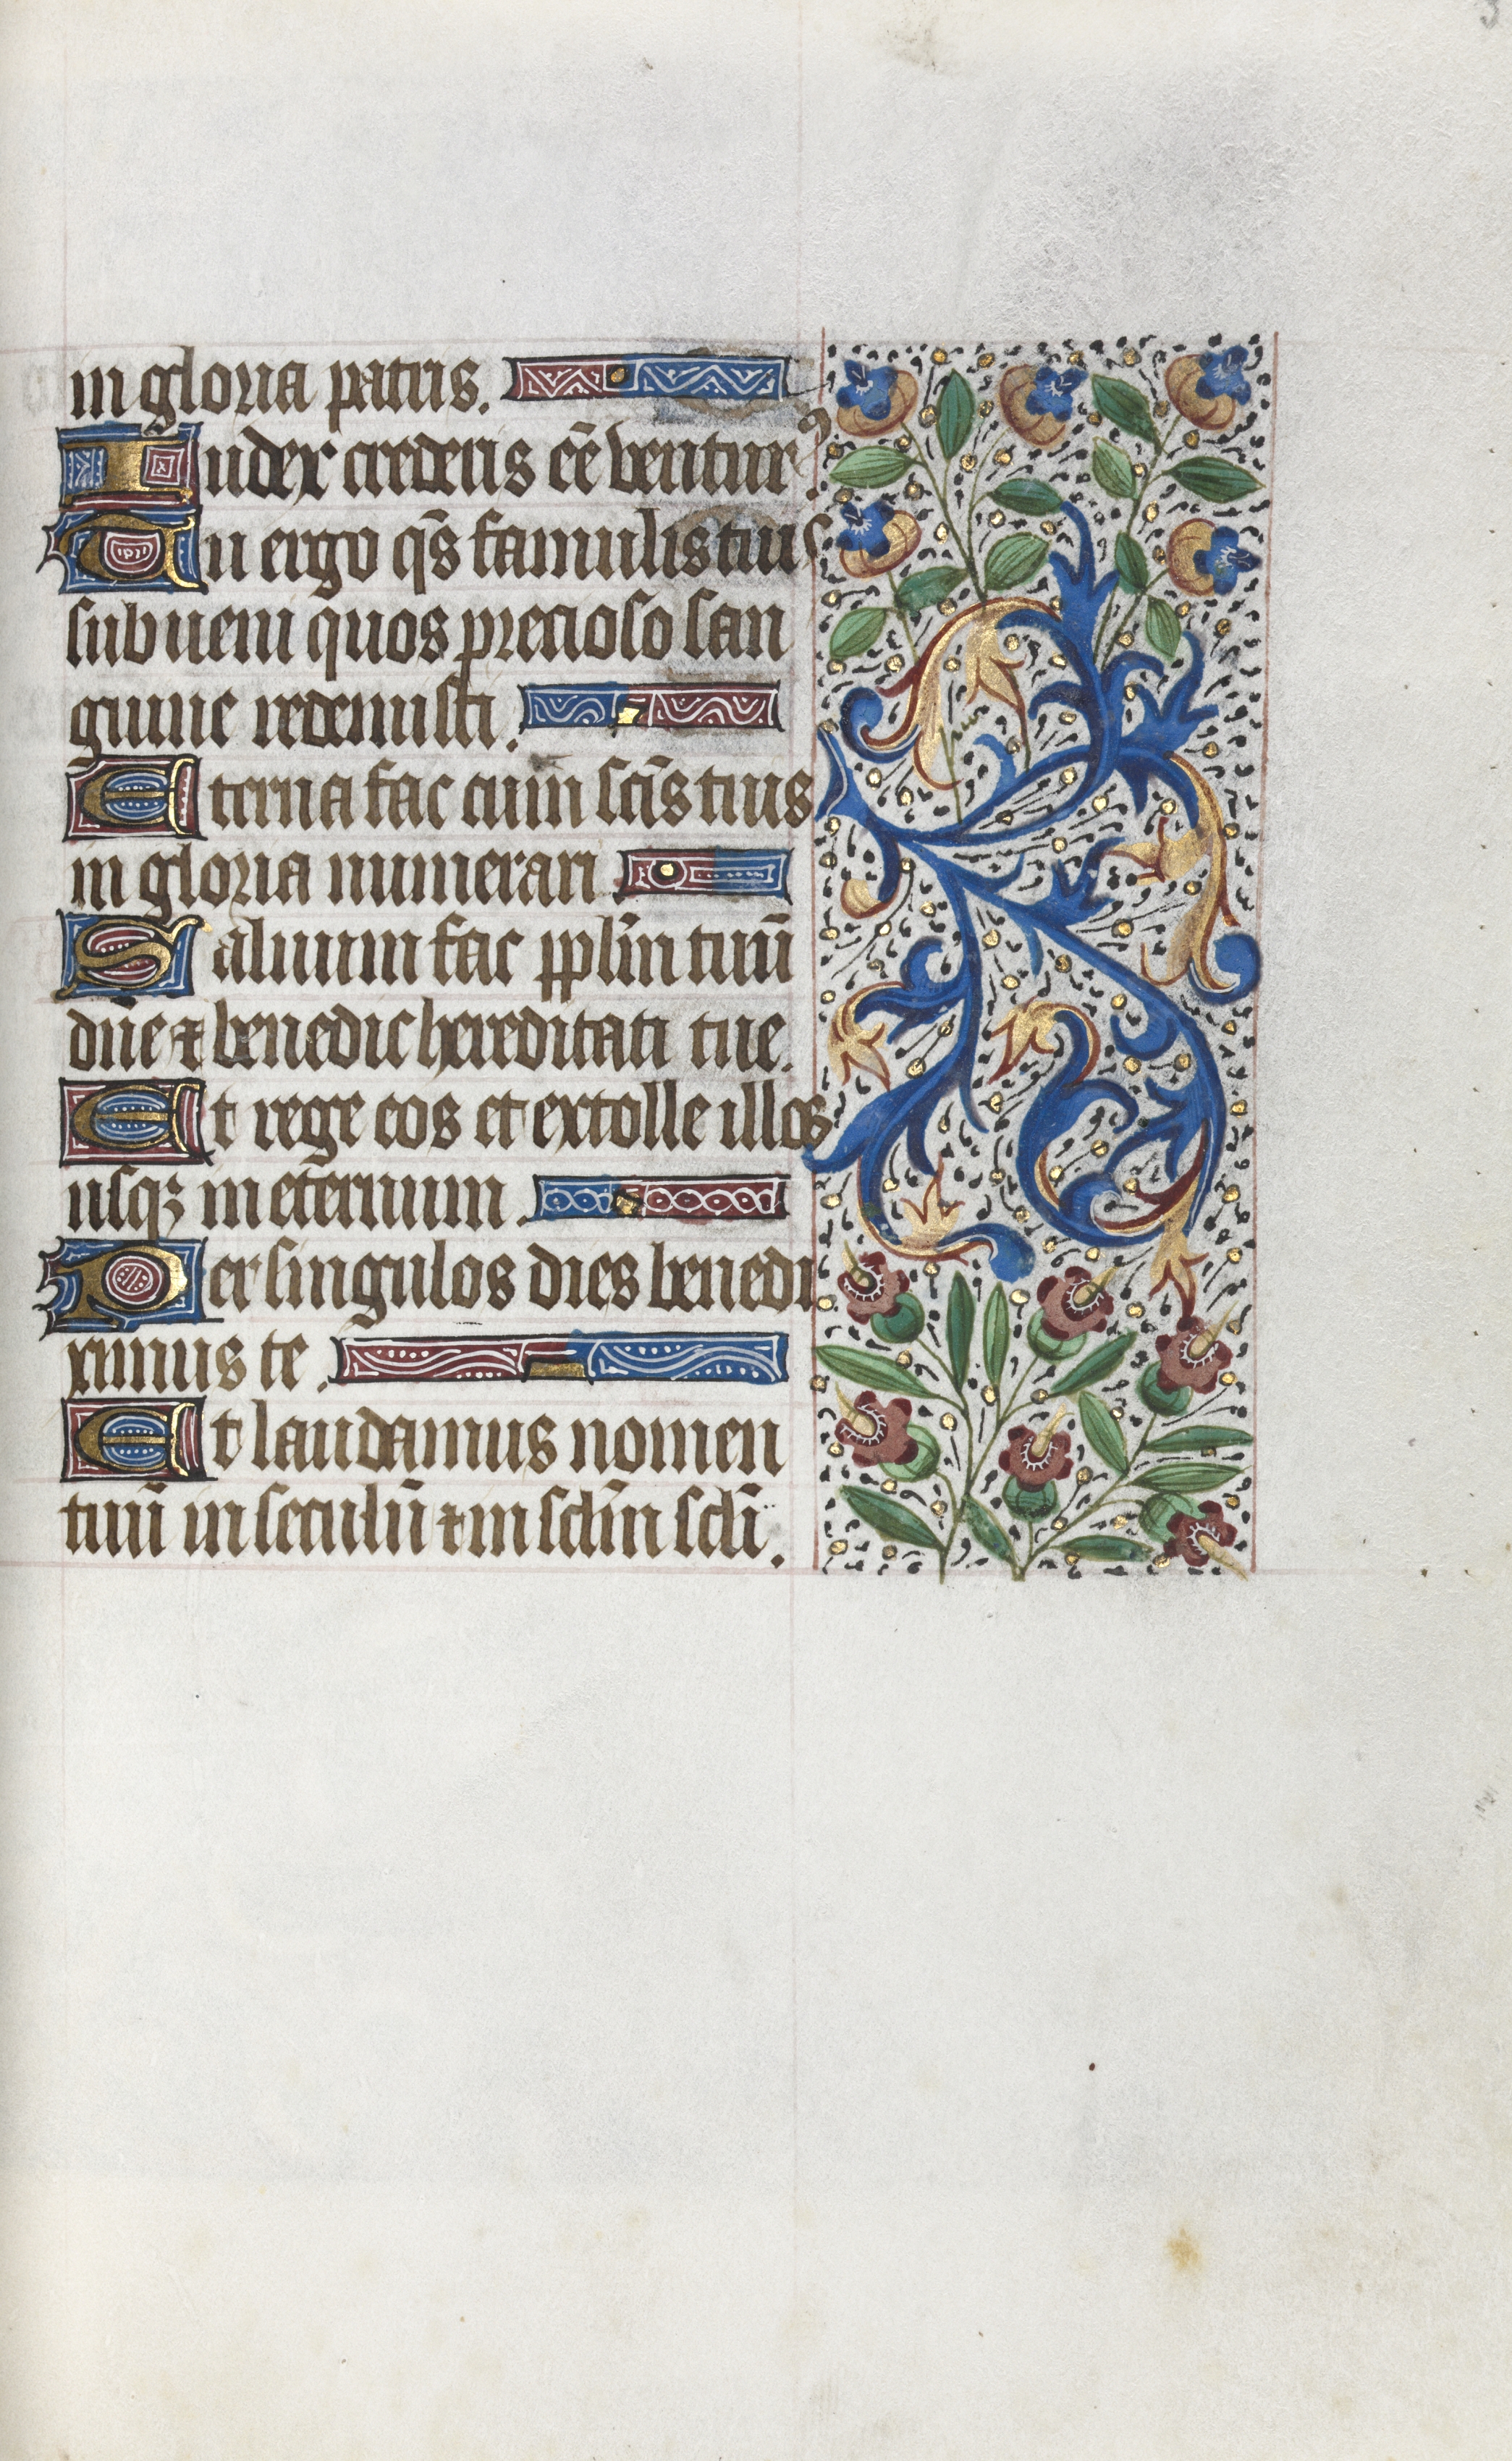 in gloria patris.
Iudex crederis eē̄ ventur⁹.
Tu ergo qs̄ famulis tuis
subueni quos precioso san
guine redemisti.
Eterna fac cum scīs tuis
in gloria numerari.
Saluum fac pplīn tuū
dn̄e ⁊ benedic hereditati tue.
Et rege eos et extolle illos
usqꝫ in eternum.
Per singulos dies benedi
ximus te.
Et laudamus nomen
tuū in seculū ⁊ in sclīn sclī.